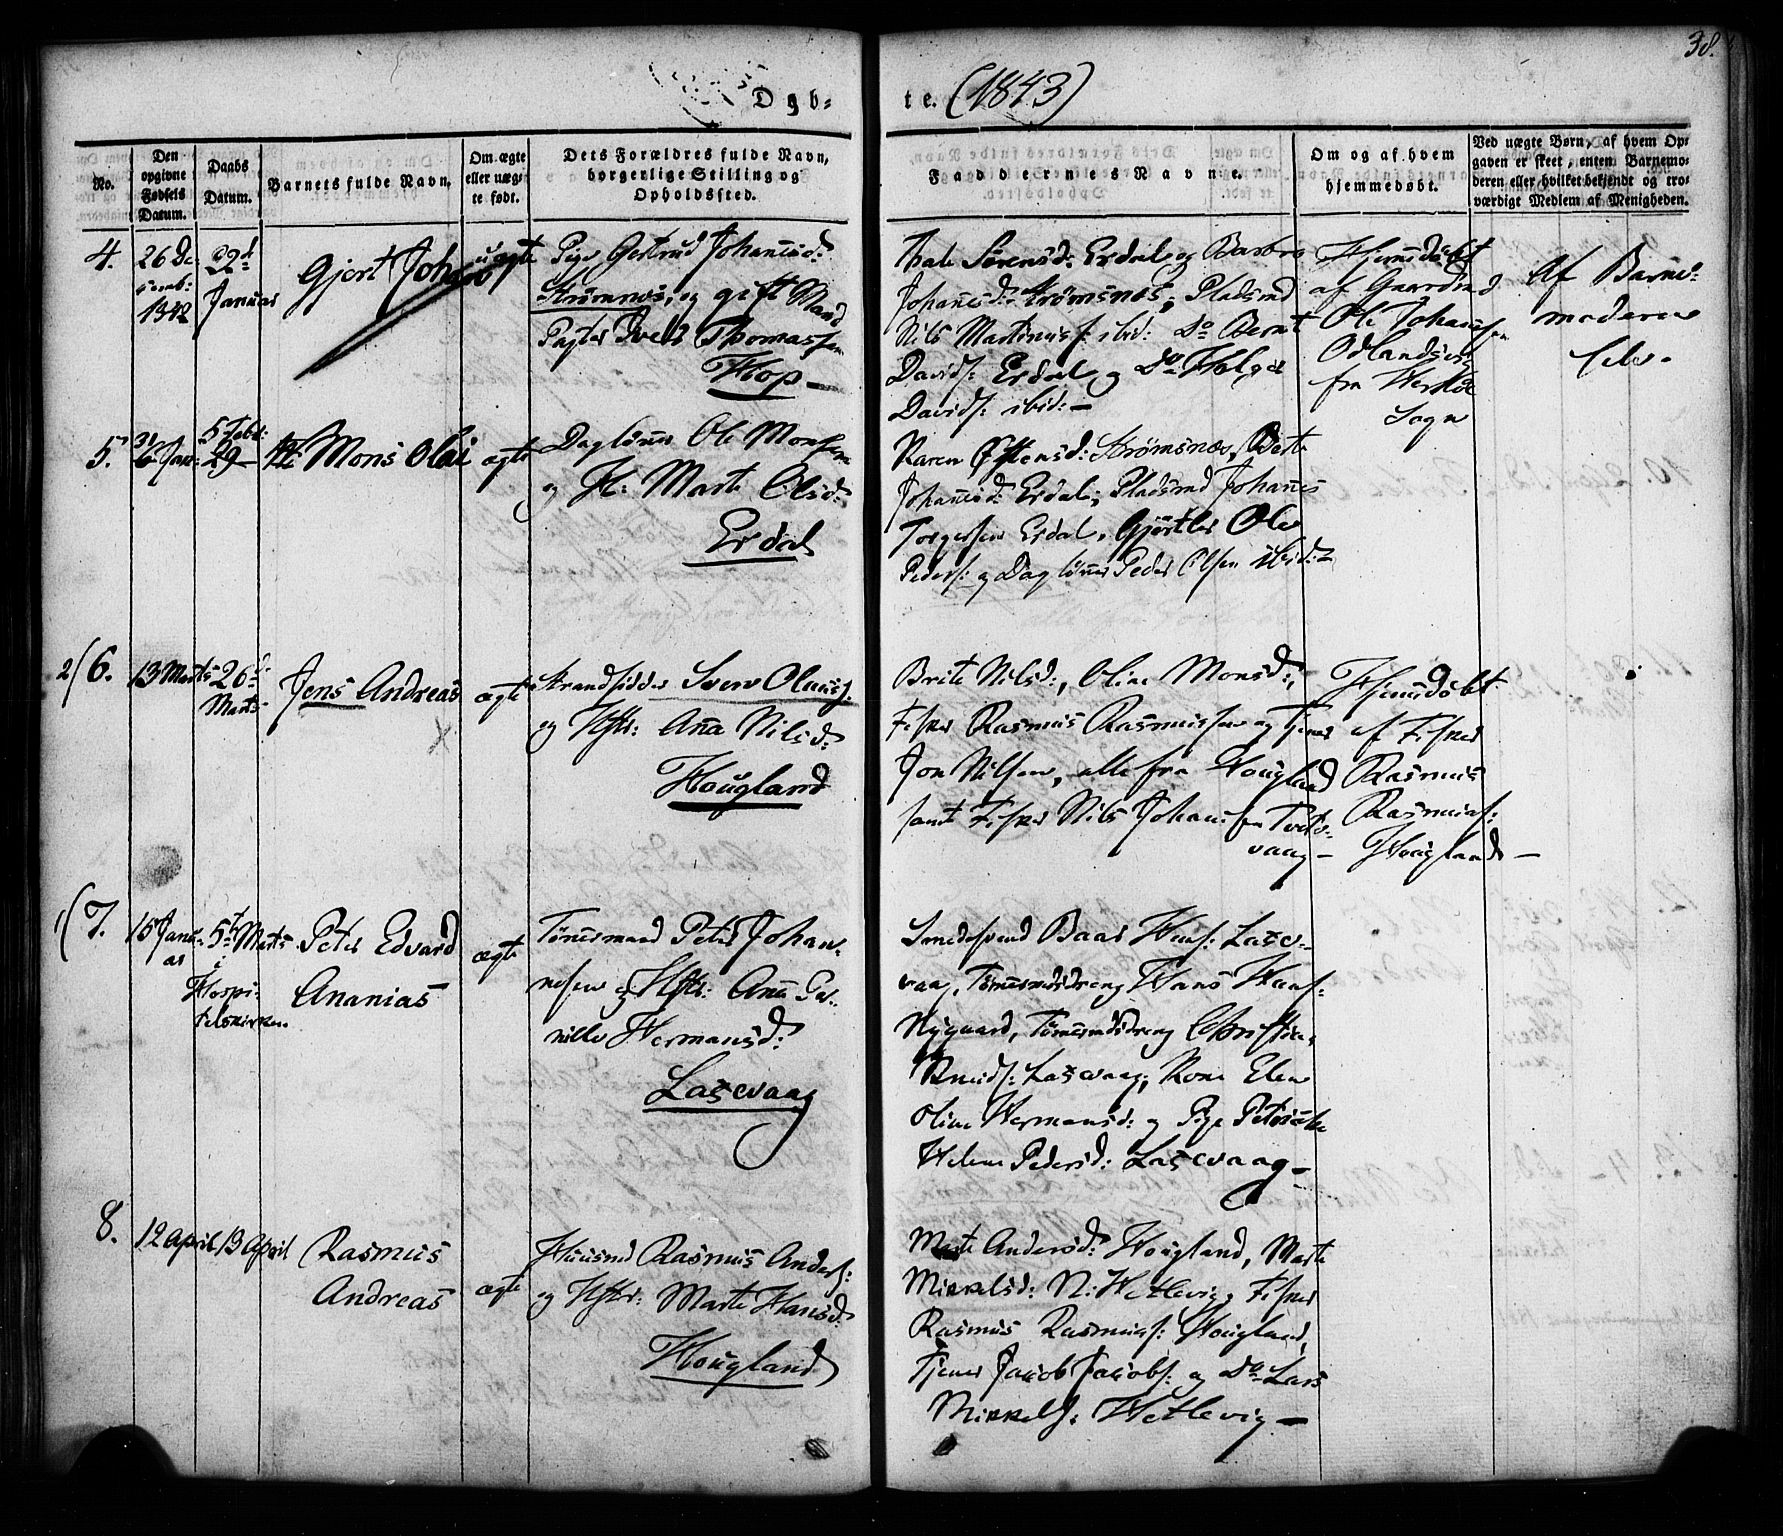 38.
Døb-
te. (1843)
No.
Den opgivne Fødsels Datum.
Daabs Datum.
Barnets fulde Navn.
Om ægte eller uægte født.
Dets Forældres fulde Navn, borgerlige Stilling og Opholdssted.
Faddernes Navne.
Om og af hvem hjemmedøbt.
Ved uægte Børn, af hvem Opgaven er skeet, enten Barnemoderen eller hvilket bekjendt og troværdigt Medlem af Menigheden.
4.
26 De-
cemb:
1842
Januar
Gjert Johan
uægte
Pige Gertrud Johannesd:
Strømsnes, og gift Mand
Thomassen
Hop
Sørensd: Erdal og Barbro
Johannesd: Strømsnes, Pladsmd
Nils Martinuss: ibid: Do Bernt
Davids: Erdal og Do Holger
Davids: ibid:
Hjemdøbt
af Gaardmd
Ole Johannessen
fra
Sogn
Af Barne-
moderen
selv.
5.
Jan:
5 Febr:
29
Mons Olai
ægte
Daglönner Ole Monsen
og H: Marte Olsd:
Erdal
Karen Strømsnæs, Berte
Johannesd: Erdal; Pladsmd Johannes
Torgersen Erdal, Gjørtler Ole
Peders: og Daglönner Peder Olsen ibid:
2/6.
13 Marts
26d
Marts
Jens Andreas
ægte
Strandsidder Sven Olaus:
og Hstr: Ana Nilsd:
Hougland
Brite Nilsd:, Oline Monsd:,
Fisker Rasmus Rasmussen og Tjener
Jon Nilsen, alle fra Hougland
samt Fisker Nils Johannessen
vaag
Hjemdöbt
af Fisker
Rasmus
Rasmus:
Hougland
1/7.
15 Janu-
ar
5t Marts
i
Hospi-
talskirken.
Peter Edvard
Ananias
ægte
Tönnesmand Peter Johan-
nesen og Hstr: Ane Per-
nille Hermansd:
Laxevaag
Smedesvend Baar Hans: Laxe-
vaag, Tönnesmdsdreng Hans Hans:
Nygaard, Tönnesmdsdreng Christian
Knuds: Laxevaag; Kone Elen
Oline Hermansd: og Pige
Helene Pedersd: Laxevaag
8.
12 April
13 April
Rasmus
Andreas
ægte
Huusmd Rasmus Anders:
og Hstr: Marte Hansd:
Hougland
Marte Andersd: Hougland, Marte
Mikkelsd: N: Hetlevig, Fisker
Rasmus Rasmus: Hougland,
Tjener Jacob Jacobs: og Do Lars
Mikkels: Hetlevig